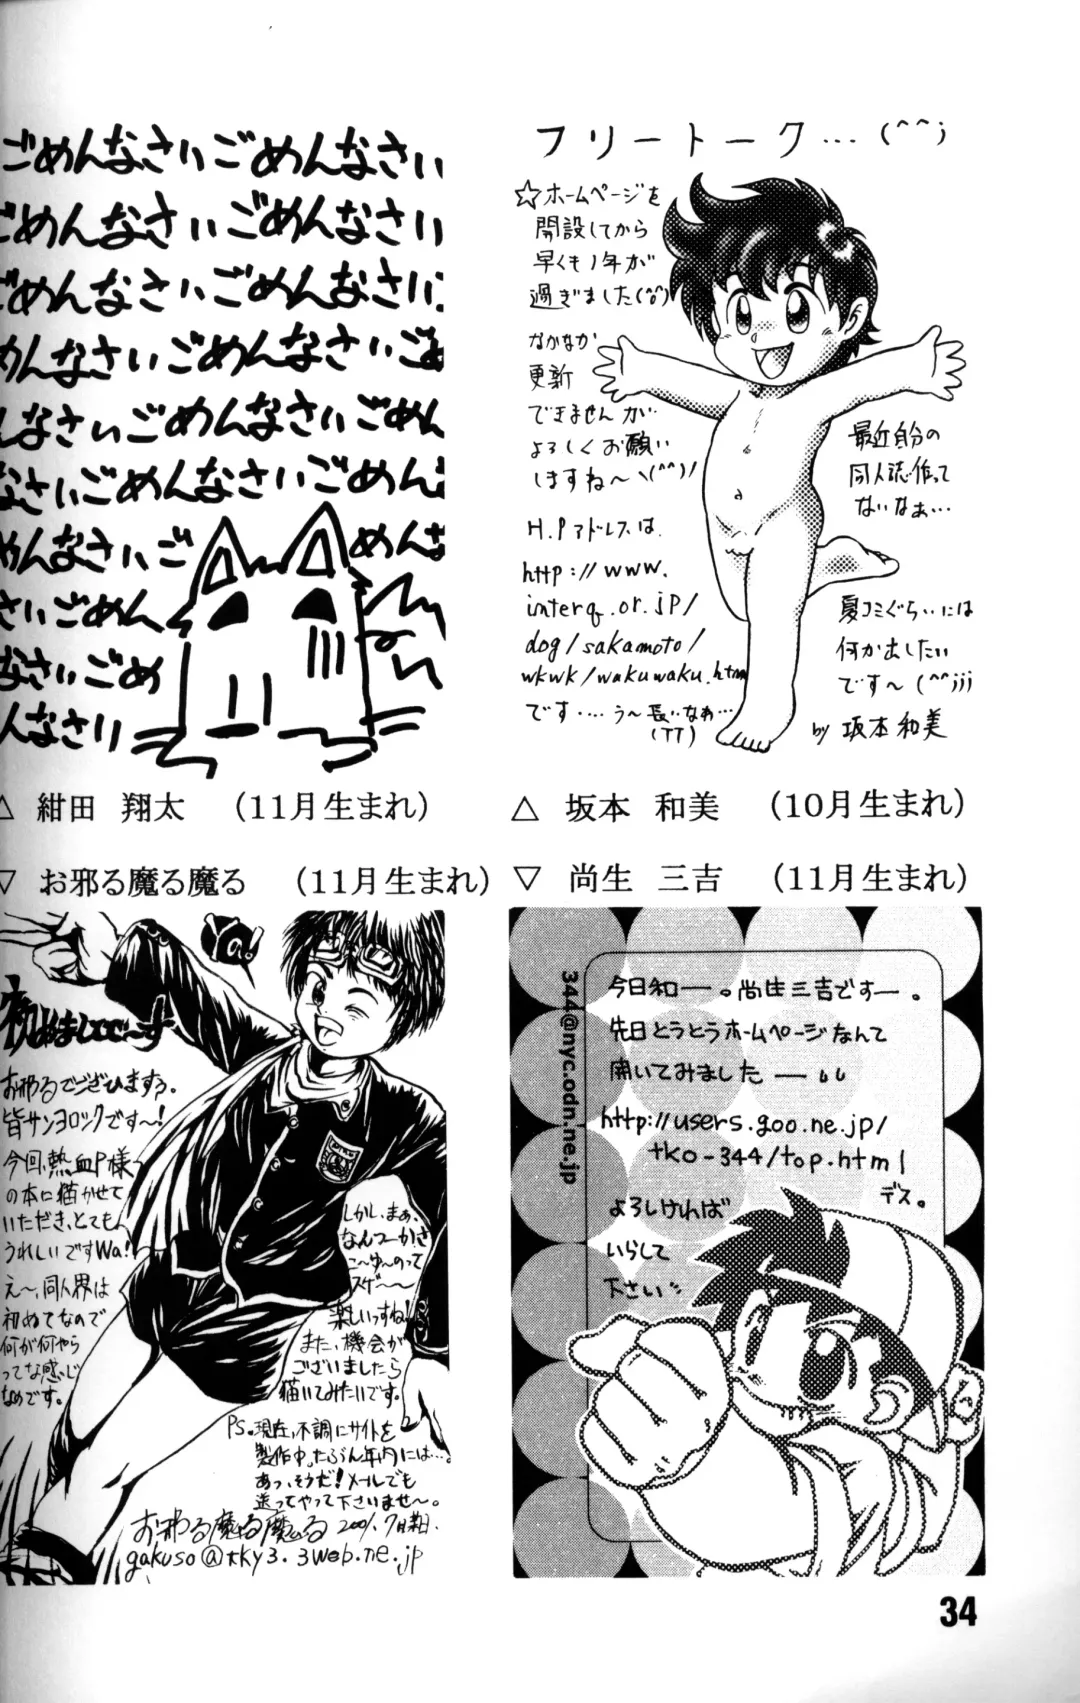 ごめんなさいごめんなさい
ごめんなさいごめんなさい
ごめんなさいごめんなさい
めんなさいごめんなさいごめ
なさいごめんなさいごめん
なさいごめんなさいごめん
めんなさいご
めんな
さいごめん
なさいごめ
んなさい
フリートーク…(^^;
☆ホームページを
開設してから
早くも1年が
過ぎました(^o^)
なかなか
更新
できませんが…
よろしくお願い
しますね〜ヽ(^^)ノ
H.Pアドレスは
http://www.
interq.or.jp/
dog/sakamoto/
wkwk/wakuwaku.htm
です…. う〜長いなぁ…
(TT)
最近自分の
同人誌作って
ないなぁ…
夏コミぐらいには
何か出したい
です〜(^^;;;
by 坂本和美
△ 紺田 翔太 (11月生まれ)
△ 坂本 和美 (10月生まれ)
▽ お邪る魔る魔る (11月生まれ)
▽ 尚生 三吉 (11月生まれ)
初めましてで〜す
お邪るでございますぅ。
皆サンヨロシクです〜!
今回、熱血P様
の本に描かせて
いただき、とても
うれしいですWa!
え〜、同人界は
初めてなので
何が何やら
ってな感じ
なのです。
しかし、まぁ、
なんつーかさ
こ〜ゆ〜のって
スゲ〜〜
楽しいっすね!
また、機会が
ございましたら
描いてみたいです。
PS.現在、不調にサイトを
製作中。たぶん年内には…。
あっ、そうだ!メールでも
送ってやって下さいませ〜。
お邪る魔る魔る 2001.7月某日.
gakuso@tky3.3web.ne.jp
344@nyc.odn.ne.jp
今日和ー。尚生三吉ですー。
先日とうとうホームページなんて
開いてみましたー
http://users.goo.ne.jp/
tko-344/top.html
デス。
よろしければ
いらして
下さい
34